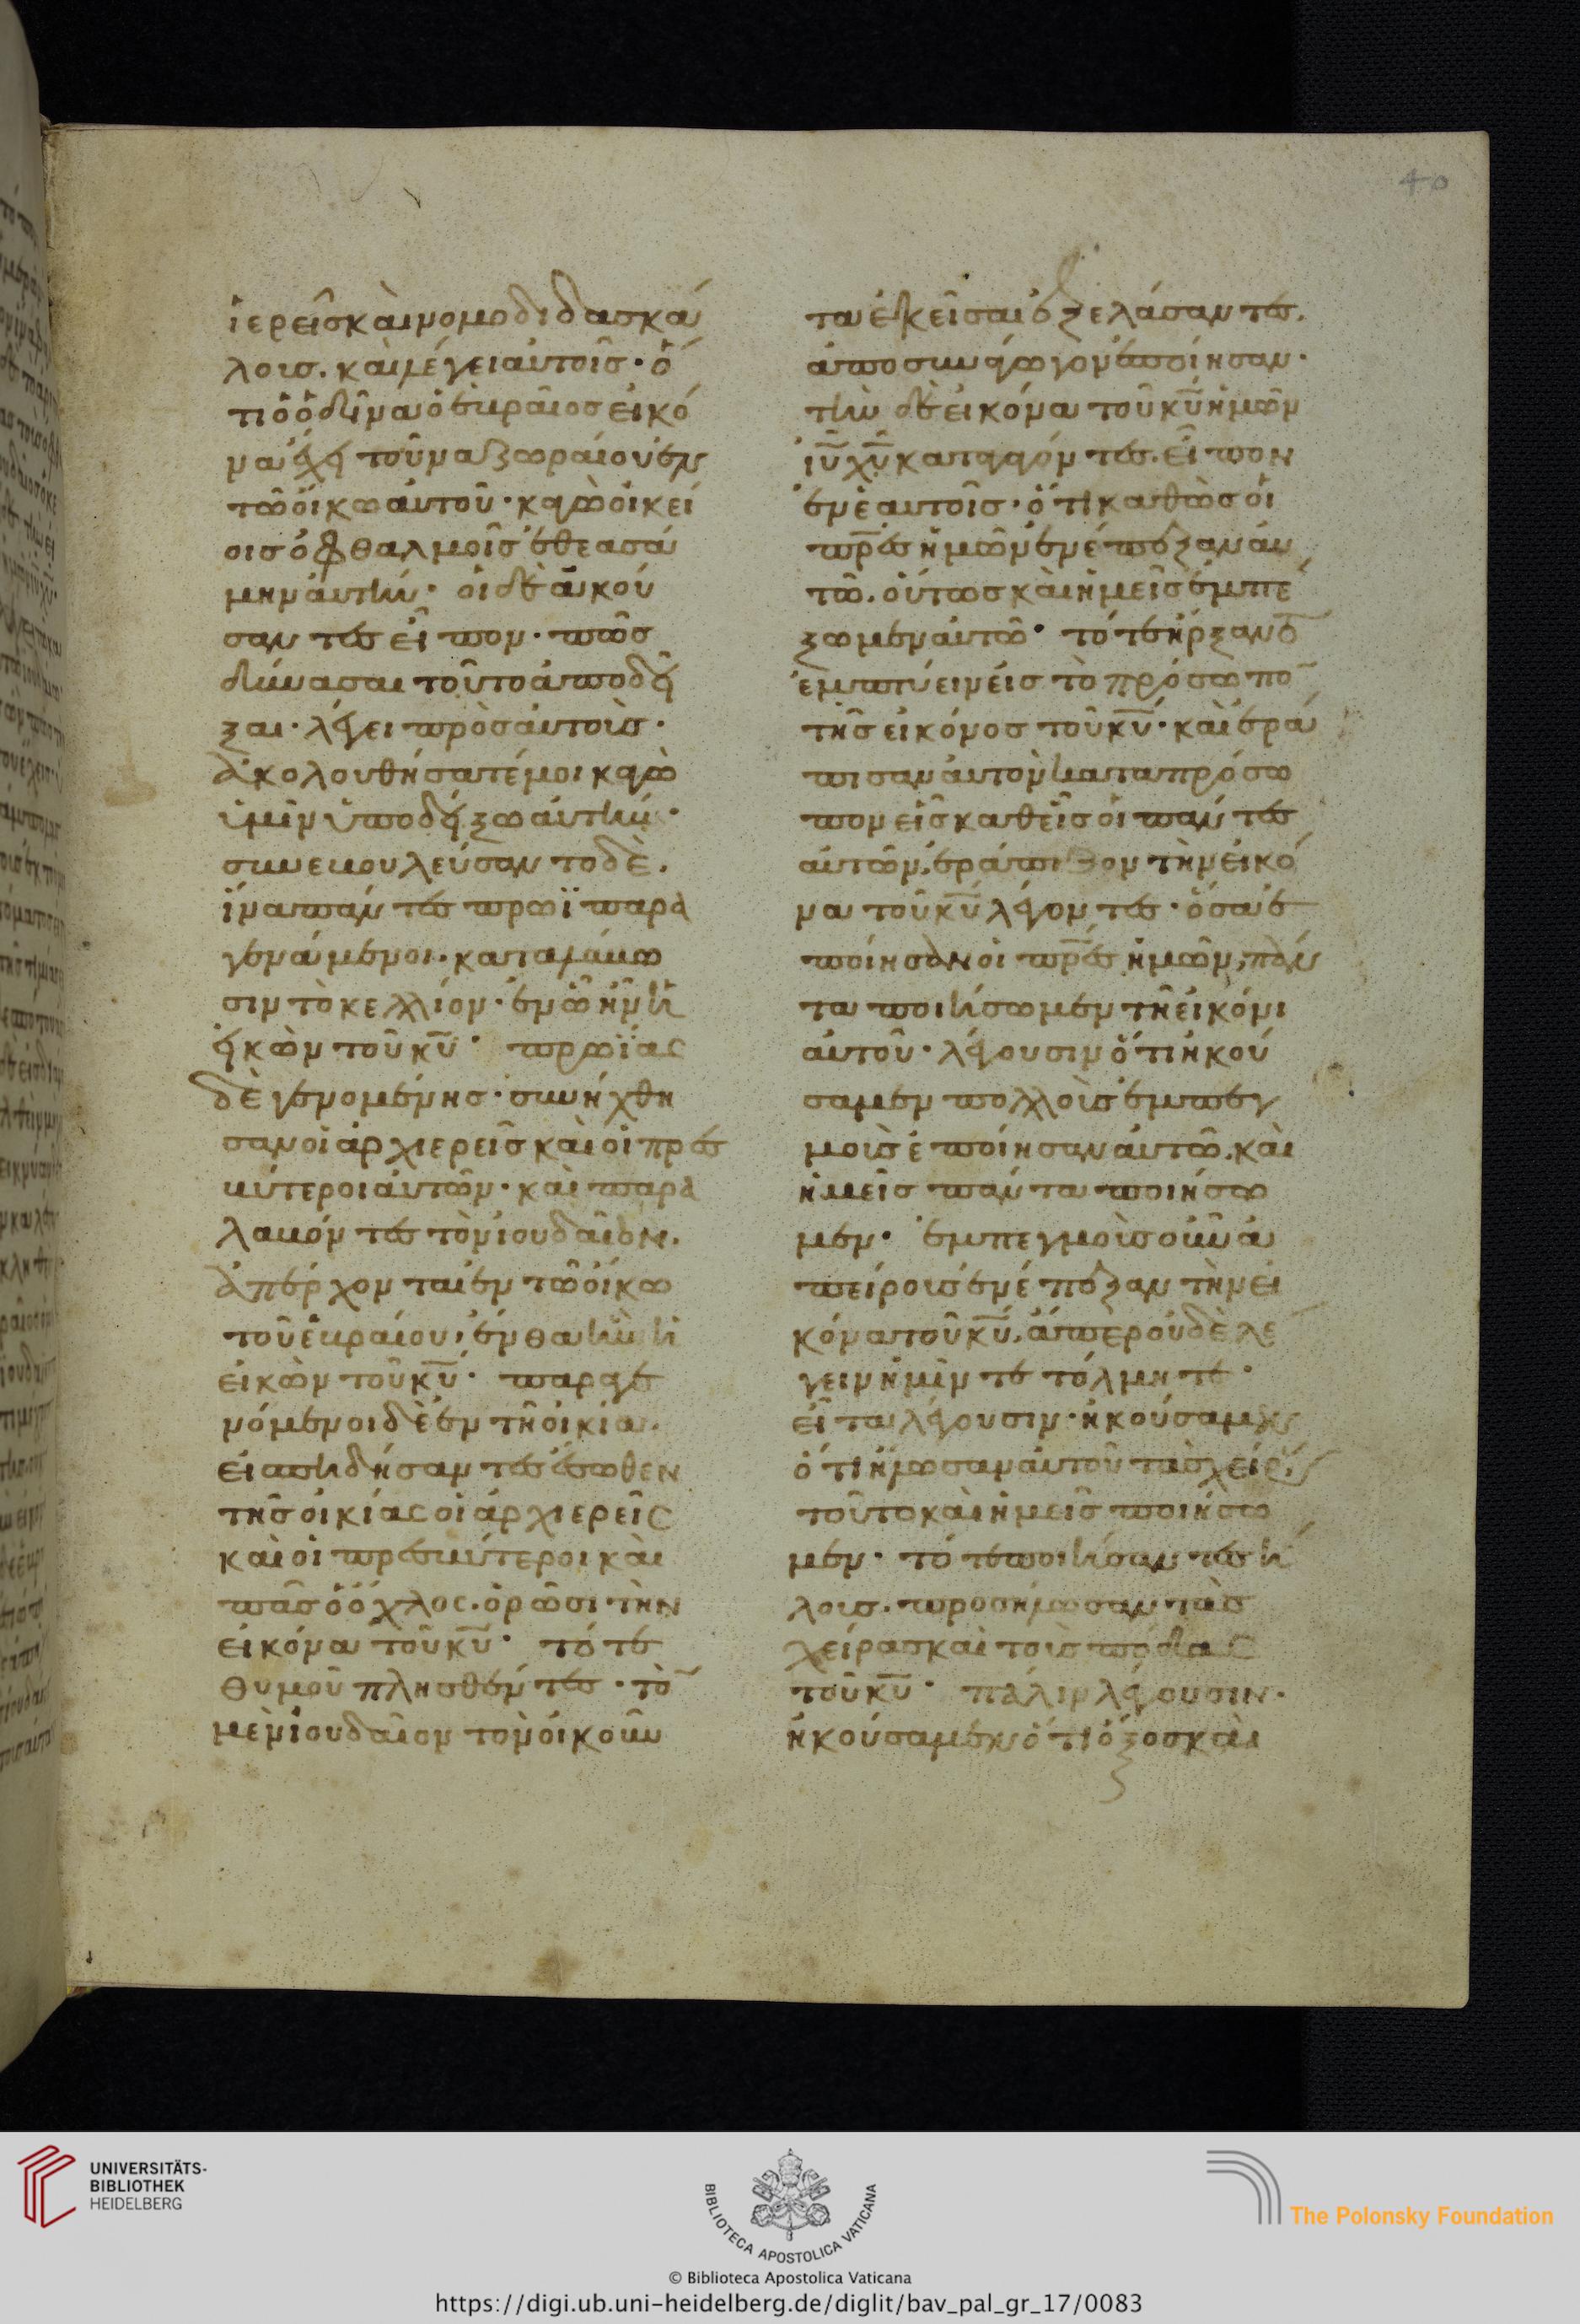 40
ἱερεῖς καὶ νομοδιδασκά
λοις. καὶ λέγει αὐτοῖς· ὅ
τι ὁ ὁδεῖνα ὁ ἑβραῖος εἰκό
να ἔχει τοῦ ναζωραίου ἐν
τῶ οἴκω αὐτοῦ· κἀγὼ οἰκεί
οις ὀφθαλμοῖς ἐθεασά
μην αὐτήν· οἱ δὲ ἀκού
σαντες εἶπον· πῶς
δύνασαι τοῦτο ἀποδεῖ
ξαι· λέγει πρὸς αὐτούς·
ἀκολουθήσατέ μοι κἀγὼ
ὑμῖν ὑποδείξω αὐτήν·
συνεβουλεύσαντο δὲ.
ἵνα πάντες πρωῒ παρα
γενάμενοι. καταλάβω
σιν τὸ κελλίον· ἐν ᾧ ἦν ἡ
εἰκὼν τοῦ κυ̅· πρωΐας
δὲ γενομένης· συνήχθη
σαν οἱ ἀρχιερεῖς καὶ οἱ πρεσ
βύτεροι αὐτῶν· καὶ παρα
λαβόντες τὸν ἰουδαῖον.
ἀπέρχονται ἐν τῶ οἴκω
τοῦ ἑβραίου, ἔνθα ἦν ἡ
εἰκὼν τοῦ κυ̅· παραγε
νόμενοι δὲ ἐν τῆ οἰκία.
εἰσπηδήσαντες ἔσωθεν
τῆς οἰκίας οἱ ἀρχιερεῖς
καὶ οἱ πρεσβύτεροι καὶ
πᾶς ὁ ὄχλος. ὁρῶσι τὴν
εἰκόνα τοῦ κυ̅· τότε
θυμοῦ πλησθέντες· τὸ̅
μὲν ἰουδαῖον τὸν οἰκοῦν
τα ἐκεῖσαι ἐξελάσαντες.
ἀποσυνάγωγον ἐποίησαν·
τὴν δὲ εἰκόνα τοῦ κυ̅ ἡμῶν
ἰυ̅ χυ̅ καταγαγόντες. εἶπον
ἐν ἑαυτοῖς· ὅτι καθὼς οἱ
πρ̅ες ἡμῶν ἐνέπεξαν αὐ
τῶ. οὕτως καὶ ἡμεῖς ἐμπέ
ξωμεν αὐτῶ· τότε ἤρξαντο
ἐμπτύειν εἰς τὸ πρόσωπο̅
τῆς εἰκόνος τοῦ κυ̅· καὶ ἐρά
πισαν αὐτὸν κατὰ πρόσω
πον εἷς καθεῖς οἱ πάντες
αὐτῶν, ἐράπιζον τὴν εἰκό
να τοῦ κυ̅ λέγοντες· ὅσα ἐ
ποίησαν οἱ πρ̅ες ἡμῶν, πάν
τα ποιήσωμεν τῆ εἰκόνι
αὐτοῦ· λέγουσιν ὅτι ἠκού
σαμεν πολλοὺς ἐμπεγ
μοὺς ἐποίησαν αὐτῶ. καὶ
ἡμεῖς πάντα ποιήσω
μεν· ἐμπεγμοὺς οὖν ἀ
πείρους ἐνέπεξαν τὴν εἰ
κόνα τοῦ κυ̅, ἅπερ οὐδὲ λέ
γειν ἡμῖν τετόλμητε·
εἶτα λέγουσιν· ἠκούσαμεν
ὅτι ἥλωσαν αὐτοῦ τὰς χεῖρας
τοῦτο καὶ ἡμεῖς ποιήσω
μεν· τότε ποιήσαντες ἥ
λους. προσήλωσαν τὰς
χεῖρας καὶ τοὺς πόδας
τοῦ κυ̅· πάλιν λέγουσιν·
ἠκούσαμεν ὅτι ὄξος καὶ
UNIVERSITÄTS-
BIBLIOTHEK
HEIDELBERG
BIBLIOTECA APOSTOLICA VATICANA
The Polonsky Foundation
© Biblioteca Apostolica Vaticana
https://digi.ub.uni-heidelberg.de/diglit/bav_pal_gr_17/0083